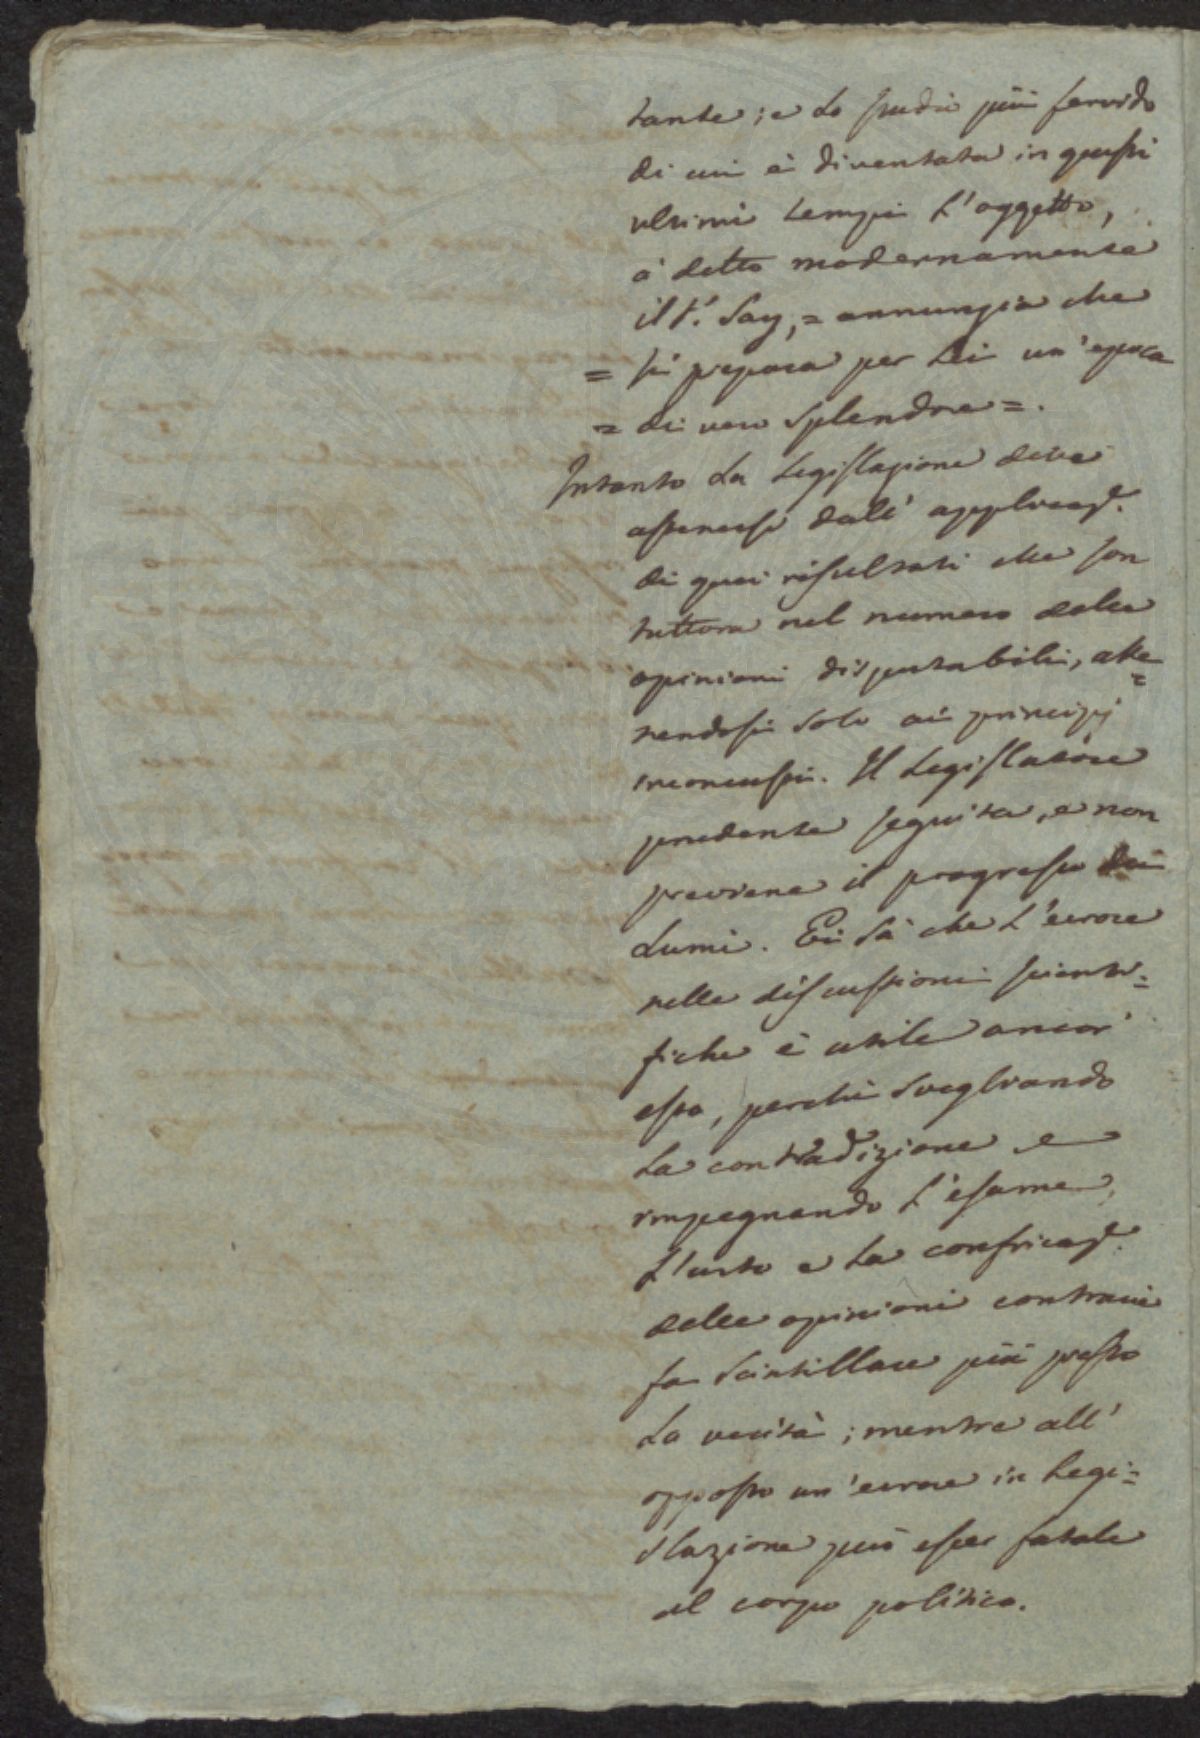 tante; e lo studio più fervido
di cui è diventata in questi
ultimi tempi l'oggetto,
à detto modernamente
il S.r Say, = annunzia che
= si prepara per lei un'epoca
= di vero splendore =.
Intanto la legislazione deve
astenersi dall' applicaz.e
di quei risultati che son
tuttora nel numero delle
opinioni disputabili, atte=
nendosi solo ai principj
inconcussi. Il Legislatore
prudente seguita, e non
previene il progresso dei
lumi. Ei sà che l'errore
nelle discussioni scienti=
fiche è utile ancor'
esso, perchè svegliando
la contradizione e
impegnando l'esame,
l'urto e la confricaz.e
delle opinioni contrarie
fa scintillare più presto
la verità; mentre all'
opposto un'errore in legi=
slazione può esser fatale
al corpo politico.